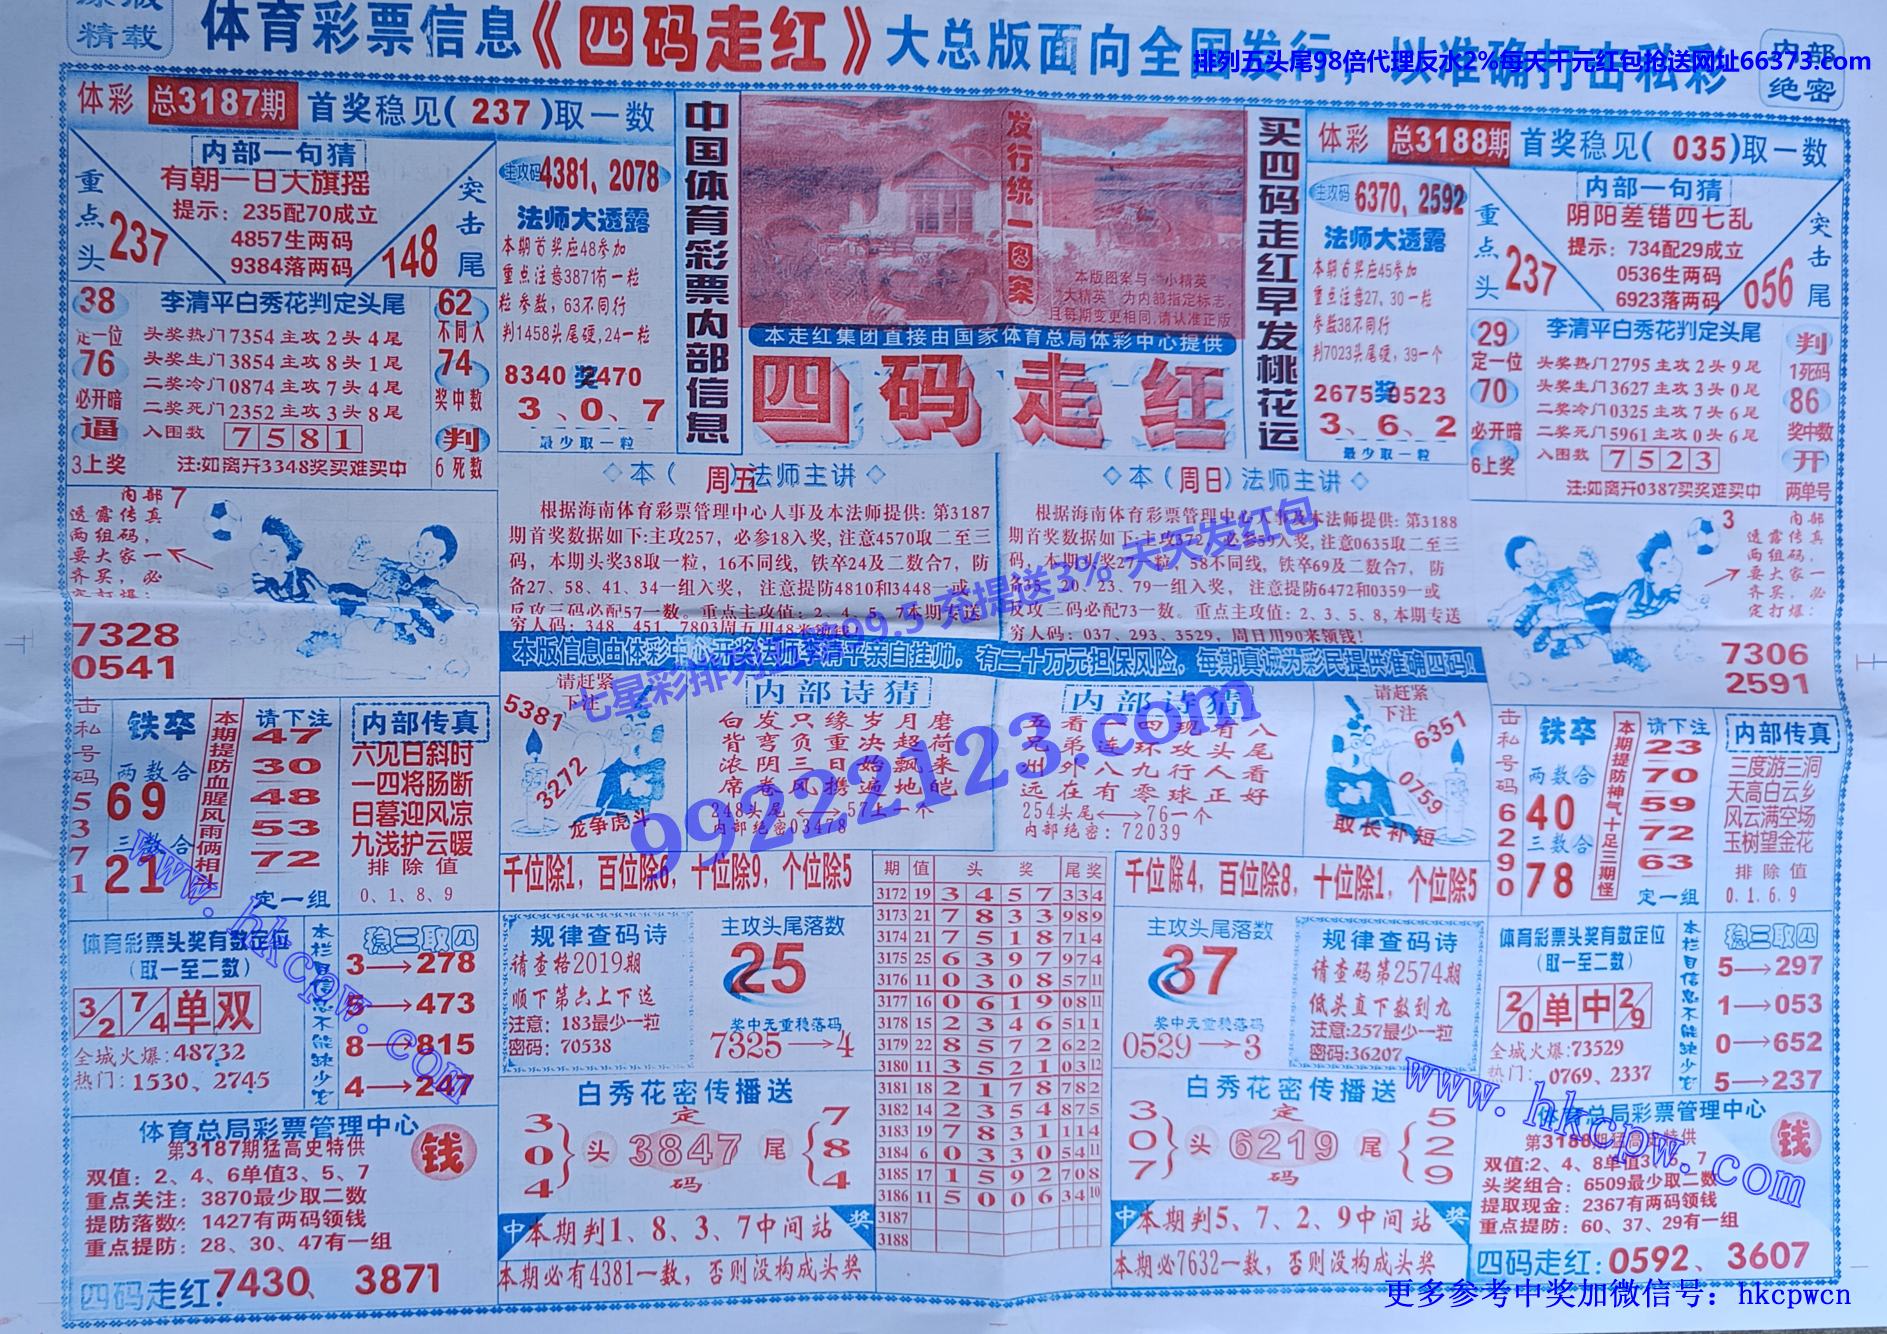 精载
体育彩票信息《四码走红》大总版面向全国发行，以准确打击私彩
内部
绝密
排列五头尾98倍代理反水2%每天千元红包抢送网址66373.com
体彩 总3187期 首奖稳见(237)取一数
内部一句猜
有朝一日大旗摇
提示：235配70成立
4857生两码
9384落两码
重点头
237
突击尾
148
主攻码4381、2078
法师大透露
本期首奖应48参加
重点注意3871有一粒
粒参数，63不同行
判1458头尾硬,24一粒
8340奖2470
3、0、7
最少取一粒
38
定一位
76
必开暗
逼
3上奖
李清平白秀花判定头尾
头奖热门7354主攻2头4尾
头奖生门3854主攻8头1尾
二奖冷门0874主攻7头4尾
二奖死门2352主攻3头8尾
入围数 7581
注:如离开3348奖买难买中
62
不同入
74
奖中数
判
6死数
中国体育彩票内部信息
发行统一图案
本版图案与“小精英”
“大精英”为内部指定标志，
且每期变更相同,请认准正版
本走红集团直接由国家体育总局体彩中心提供
四码走红
买四码走红早发桃花运
体彩 总3188期 首奖稳见(035)取一数
主攻码6370、2592
法师大透露
本期首奖应45参加
重点注意27,30一粒
参数38不同行
判7023头尾硬,39一个
2675奖9523
3、6、2
最少取一粒
内部一句猜
阴阳差错四七乱
提示：734配29成立
0536生两码
6923落两码
重点头
237
突击尾
056
29
定一位
70
必开暗
6上奖
李清平白秀花判定头尾
头奖热门2795主攻2头9尾
头奖生门3627主攻3头0尾
二奖冷门0325主攻7头6尾
二奖死门5961主攻0头6尾
入围数 7523
注:如离开0387买奖难买中
判
1死码
86
奖中数
开
两单号
内部7
透露传真
两组码，
要大家一
齐买，必
定打爆：
7328
0541
◇本(周五)法师主讲◇
根据海南体育彩票管理中心人事及本法师提供：第3187
期首奖数据如下:主攻257，必参18入奖，注意4570取二至三
码，本期头奖38取一粒，16不同线，铁卒24及二数合7，防
备27、58、41、34一组入奖， 注意提防4810和3448一或
反攻三码必配57一数。重点主攻值：2、4、5、7本期专送
穷人码：348、451、7803周五用48来领钱!
◇本(周日)法师主讲◇
根据海南体育彩票管理中心人事及本法师提供：第3188
期首奖数据如下:主攻372，必参59入奖,注意0635取二至三
码，本期头奖27一粒，58不同线，铁卒69及二数合7， 防
备35、20、23、79一组入奖， 注意提防6472和0359一或
反攻三码必配73一数。重点主攻值：2、3、5、8,本期专送
穷人码：037、293、3529，周日用90来领钱!
3
内部
透露传真
两组码，
要大家一
齐买，必
定打爆：
7306
2591
七星彩排列五 99.5 充提送3% 天天发红包
99222123.com
本版信息由体彩中心开奖法师李清平亲自挂帅，有二十万元担保风险，每期真诚为彩民提供准确四码!
击私号码5371
铁卒
两数合
69
三数合
21
本期提防血腥风雨俩相斗
请下注
47
30
48
53
72
定一组
内部传真
六见日斜时
一四将肠断
日暮迎风凉
九浅护云暖
排除值
0、1、8、9
请赶紧
下注
5381
3272
龙争虎斗
内部诗猜
白发只缘岁月磨
背弯负重决超荷
浓阴三日始飘来
席卷风携遍地皑
248头尾⟷57上一个
内部绝密03478
内部诗猜
五看一四现有八
兄弟连环攻头尾
州外八九行人看
远在有零球正好
254头尾⟷76一个
内部绝密：72039
请赶紧
下注
6351
0759
取长补短
击私号码6290
铁卒
两数合
40
三数合
78
本期提防神气十足三期怪
请下注
23
70
59
72
63
定一组
内部传真
三度游三洞
天高白云乡
风云满空场
玉树望金花
排除值
0、1、6、9
千位除1，百位除6，十位除9，个位除5
千位除4，百位除8，十位除1，个位除5
体育彩票头奖有数定位
(取一至二数)
3/2 7/4 单 双
全城火爆:48732
热门：1530、2745
本栏目信息不能缺少它
稳三取四
3→278
5→473
8→815
4→247
规律查码诗
请查格2019期
顺下第六上下选
注意：183最少一粒
密码：70538
主攻头尾落数
25
奖中无重稳落码
7325→4
期 值 头奖 尾奖
3172 19 3 4 5 7 3 3 4
3173 21 7 8 3 3 9 8 9
3174 21 7 5 1 8 7 1 4
3175 25 6 3 9 7 9 7 4
3176 11 0 3 0 8 5 7 11
3177 16 0 6 1 9 0 8 11
3178 15 2 3 4 6 5 1 1
3179 22 8 5 7 2 6 2 2
3180 11 3 5 2 1 0 3 12
3181 18 2 1 7 8 7 8 2
3182 14 2 3 5 4 8 7 5
3183 19 7 8 3 1 1 1 4
3184 6 0 3 3 0 5 4 11
3185 17 1 5 9 2 7 0 8
3186 11 5 0 0 6 3 4 10
3187
3188
主攻头尾落数
37
奖中无重稳落码
0529→3
规律查码诗
请查码第2574期
低头直下数到九
注意:257最少一粒
密码:36207
体育彩票头奖有数定位
(取一至二数)
2/0 单 中 2/9
全城火爆:73529
热门： 0769、2337
本栏目信息不能缺少它
稳三取四
5→297
1→053
0→652
5→237
体育总局彩票管理中心
第3187期猛高史特供
钱
双值：2、4、6单值3、5、7
重点关注：3870最少取二数
提防落数：1427有两码领钱
重点提防：28、30、47有一组
四码走红:7430、3871
白秀花密传播送
304 头 定 3847 码 尾 784
中 本期判1、8、3、7中间站 奖
本期必有4381一数，否则没构成头奖
白秀花密传播送
307 头 定 6219 码 尾 529
中 本期判5、7、2、9中间站 奖
本期必7632一数，否则没构成头奖
体育总局彩票管理中心
第3188期猛高史特供
钱
双值:2、4、8单值3、5、7
头奖组合：6509最少取二数
提取现金：2367有两码领钱
重点提防：60、37、29有一组
四码走红:0592、3607
www.hkcpw.com
www.hkcpw.com
更多参考中奖加微信号：hkcpwcn